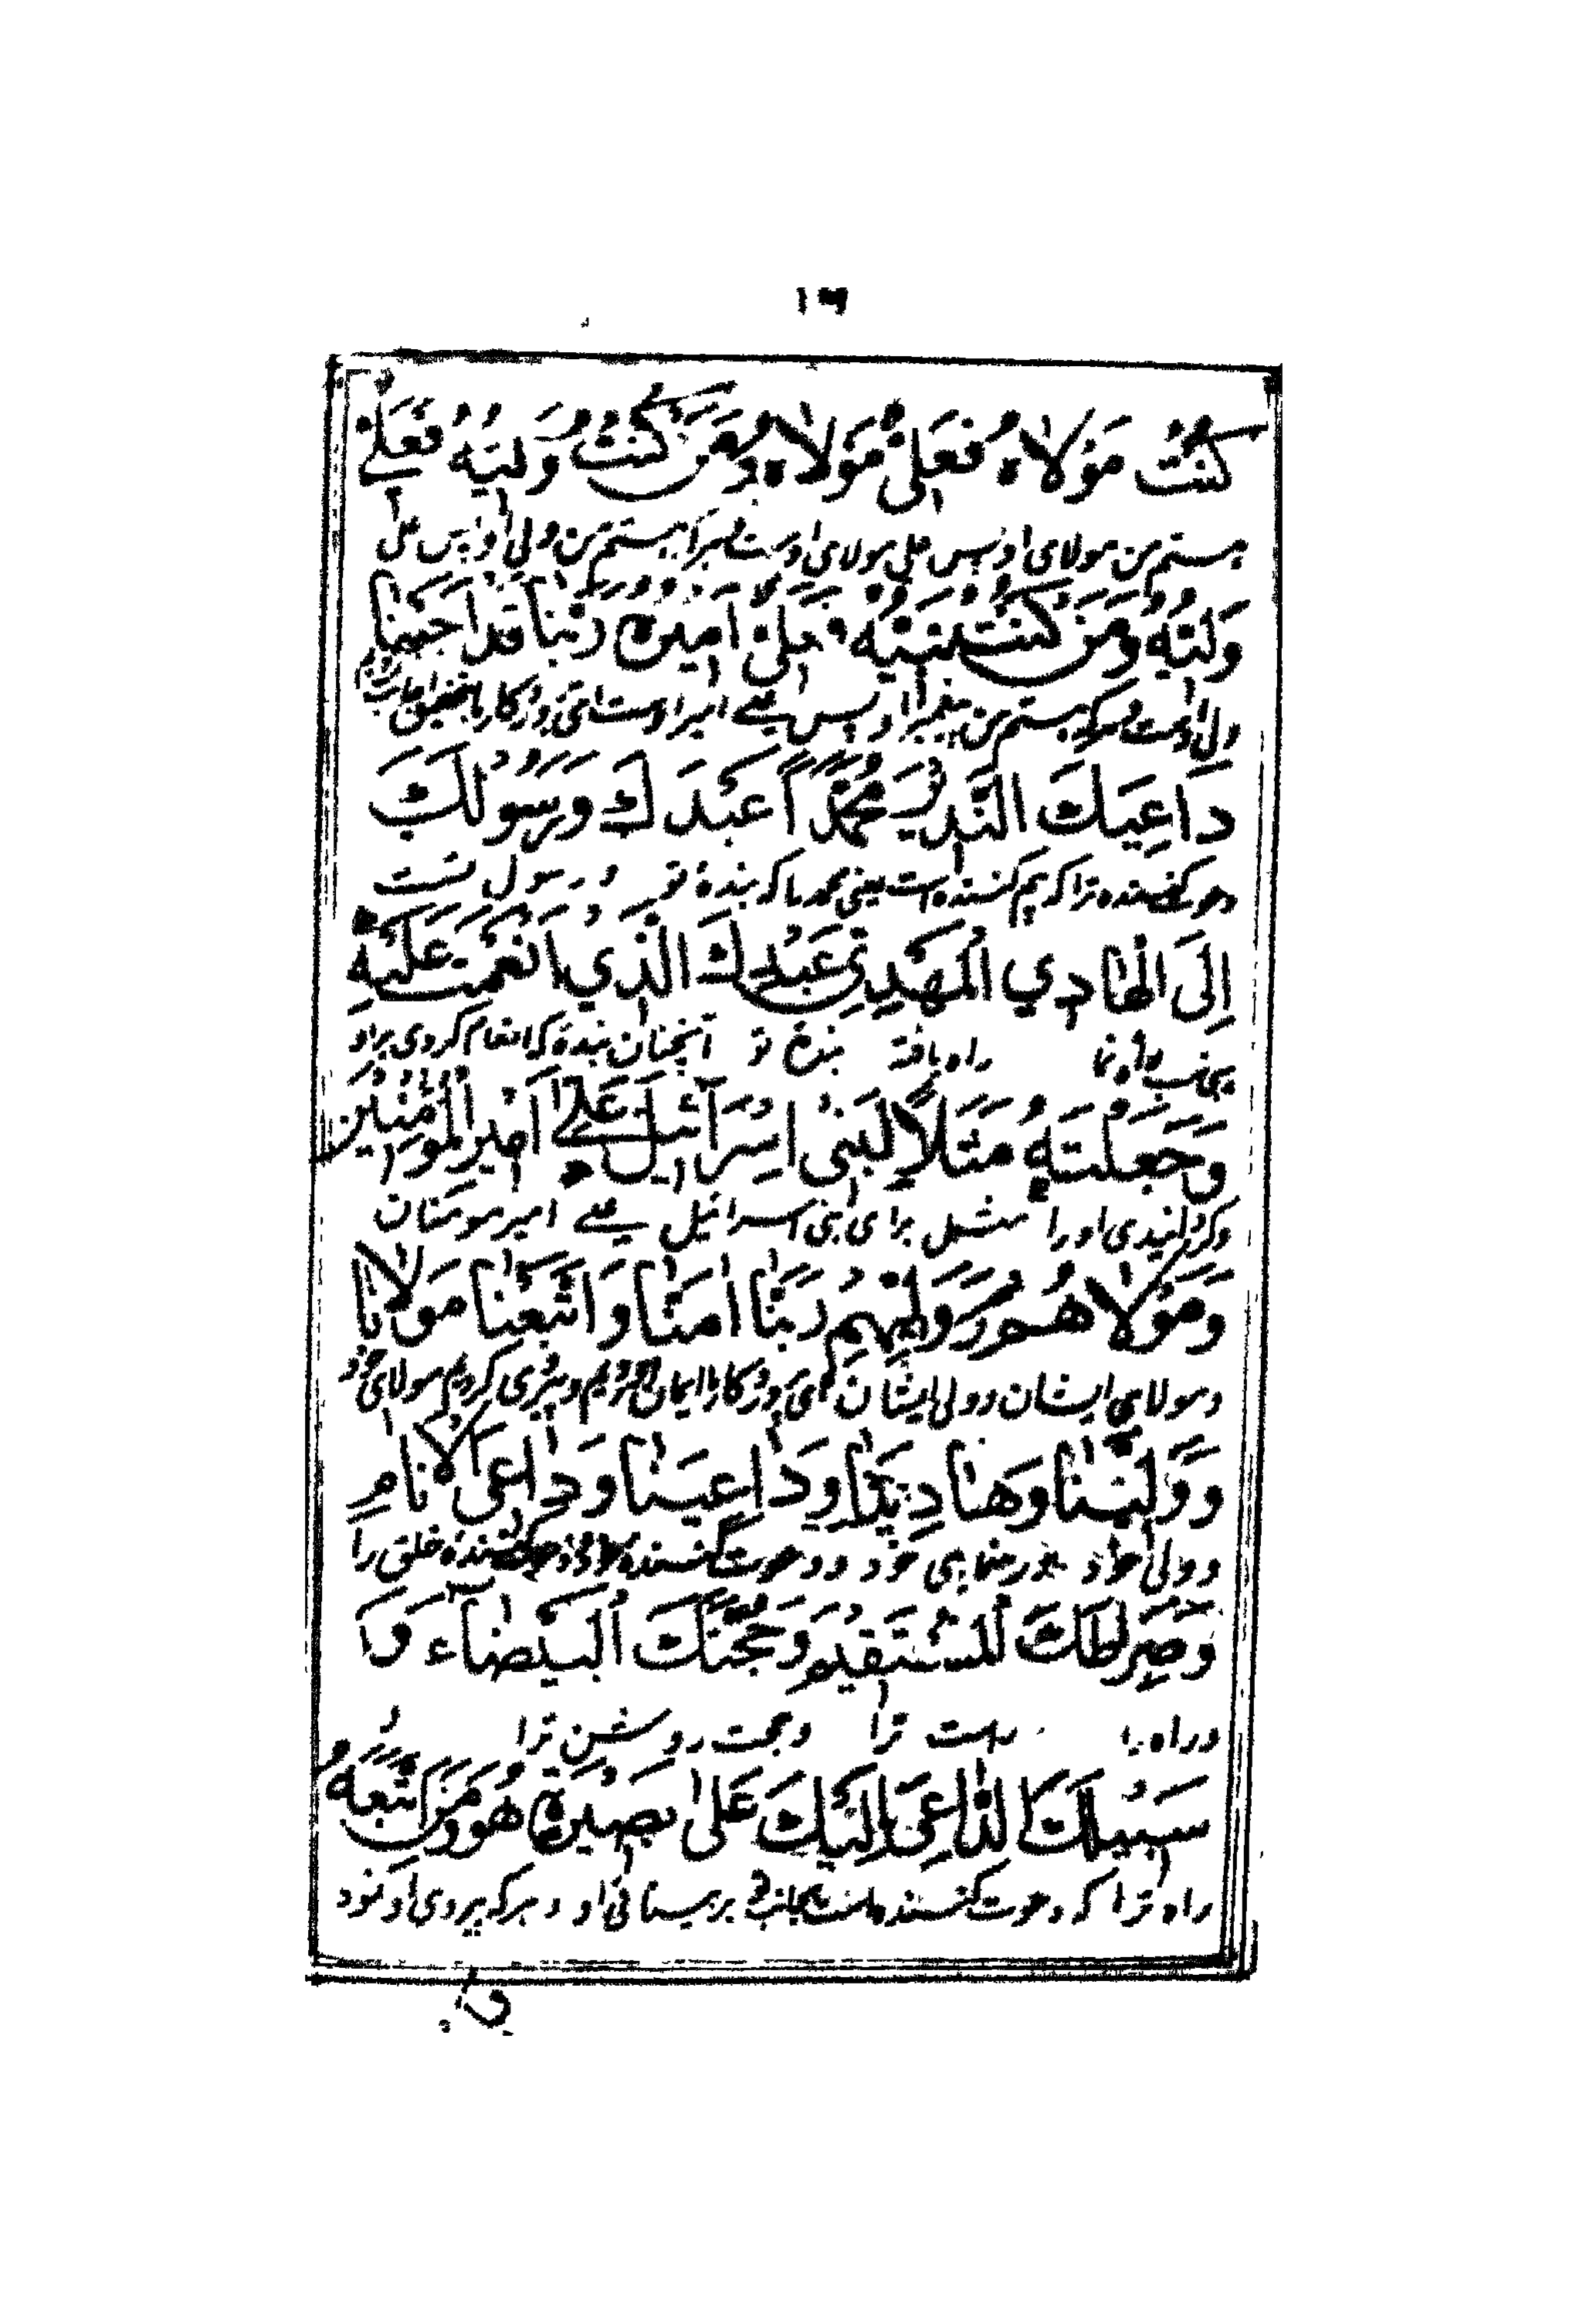 ١٦
كُنْتُ مَوْلَاهُ فَعَلِيٌّ مَوْلَاهُ وَمَنْ كُنْتُ وَلِيَّهُ فَعَلِيٌّ
هستم من مولای او پس علی مولای اوست و هر کرا هستم من ولی او پس علی
وَلِيُّهُ وَمَنْ كُنْتُ نَبِيَّهُ فَعَلِيٌّ أَمِيرُهُ رَبَّنَا قَدْ أَجَبْنَا
ولی اوست و هر که هستم من پیغمبر او پس علے امیر اوست ای پروردگار ما بتحقیق اجابت
دَاعِيَكَ النَّذِيرَ مُحَمَّدًا عَبْدَكَ وَرَسُولَكَ
دعوت کننده ترا که بیم کننده است یعنی محمد را که بنده تو و رسول تست
إِلَى الْهَادِي الْمَهْدِيِّ عَبْدِكَ الَّذِي أَنْعَمْتَ عَلَيْهِ
بجانب راه نما راه یافته بنده تو آنچنان بنده که انعام کردی بر او
وَجَعَلْتَهُ مَثَلًا لِبَنِي إِسْرَآئِيلَ عَلِيٍّ أَمِيرِ الْمُؤْمِنِينَ
و گردانیدی او را مثل برای بنی اسرائیل یعنے علے امیر مومنان
وَمَوْلَاهُمْ وَوَلِيِّهِمْ رَبَّنَا اٰمَنَّا وَاتَّبَعْنَا مَوْلَانَا
و مولای ایشان و ولی ایشان ای پروردگار ما ایمان آوردیم و پیروی کردیم مولای خود
وَوَلِيَّنَا وَهَادِيَنَا وَدَاعِيَنَا وَدَاعِيَ الْأَنَامِ
و ولی خود و رهنمای خود و دعوت کننده خود و دعوت کننده خلق را
وَصِرَاطَكَ الْمُسْتَقِيمَ وَحُجَّتَكَ الْبَيْضَآءَ وَ
و راه راست ترا و حجت روشن ترا
سَبِيلَكَ الدَّاعِيَ إِلَيْكَ عَلَى بَصِيرَةٍ هُوَ وَمَنِ اتَّبَعَهُ
راه ترا که دعوت کننده است بجانب تو بر بینائی او و هر که پیروی او نمود